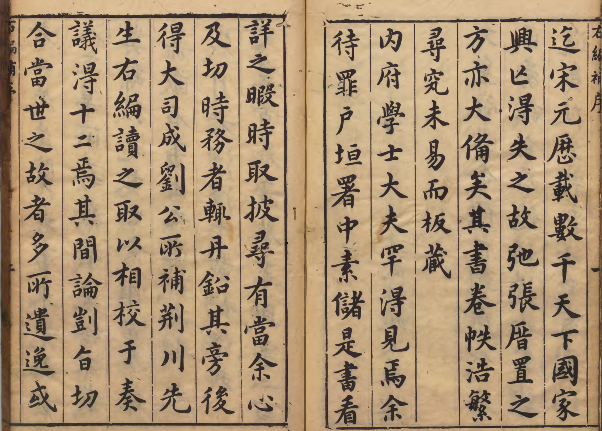 右編補序
迄宋元歷載數千天下國家
興亡得失之故弛張厝置之
方亦大備矣其書卷帙浩繁
尋究未易而板藏
內府學士大夫罕得見焉余
待罪戶垣署中素儲是書看
詳之暇時取披尋有當余心
及切時務者輒丹鉛其旁後
得大司成劉公所補荊川先
生右編讀之取以相校于奏
議得十二焉其間論剴旨切
合當世之故者多所遺逸或
右編補序